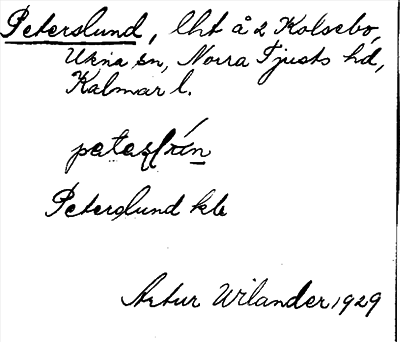 Peterslund, lht å 2 Kolsebo,
Ukna sn, Norra Tjusts hd,
Kalmar l.
Peterslund kle
Artur Wilander 1929